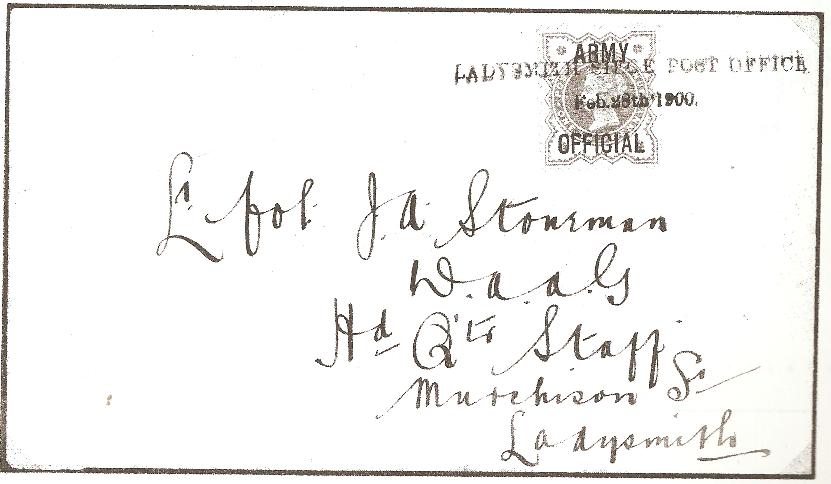 ARMY
LADYSMITH SIEGE POST OFFICE
Feb. 28th 1900.
OFFICIAL
Lt Col J. A. Stoneman
D. a. a. G
Hd Qrs Staff
Murchison St
Ladysmith